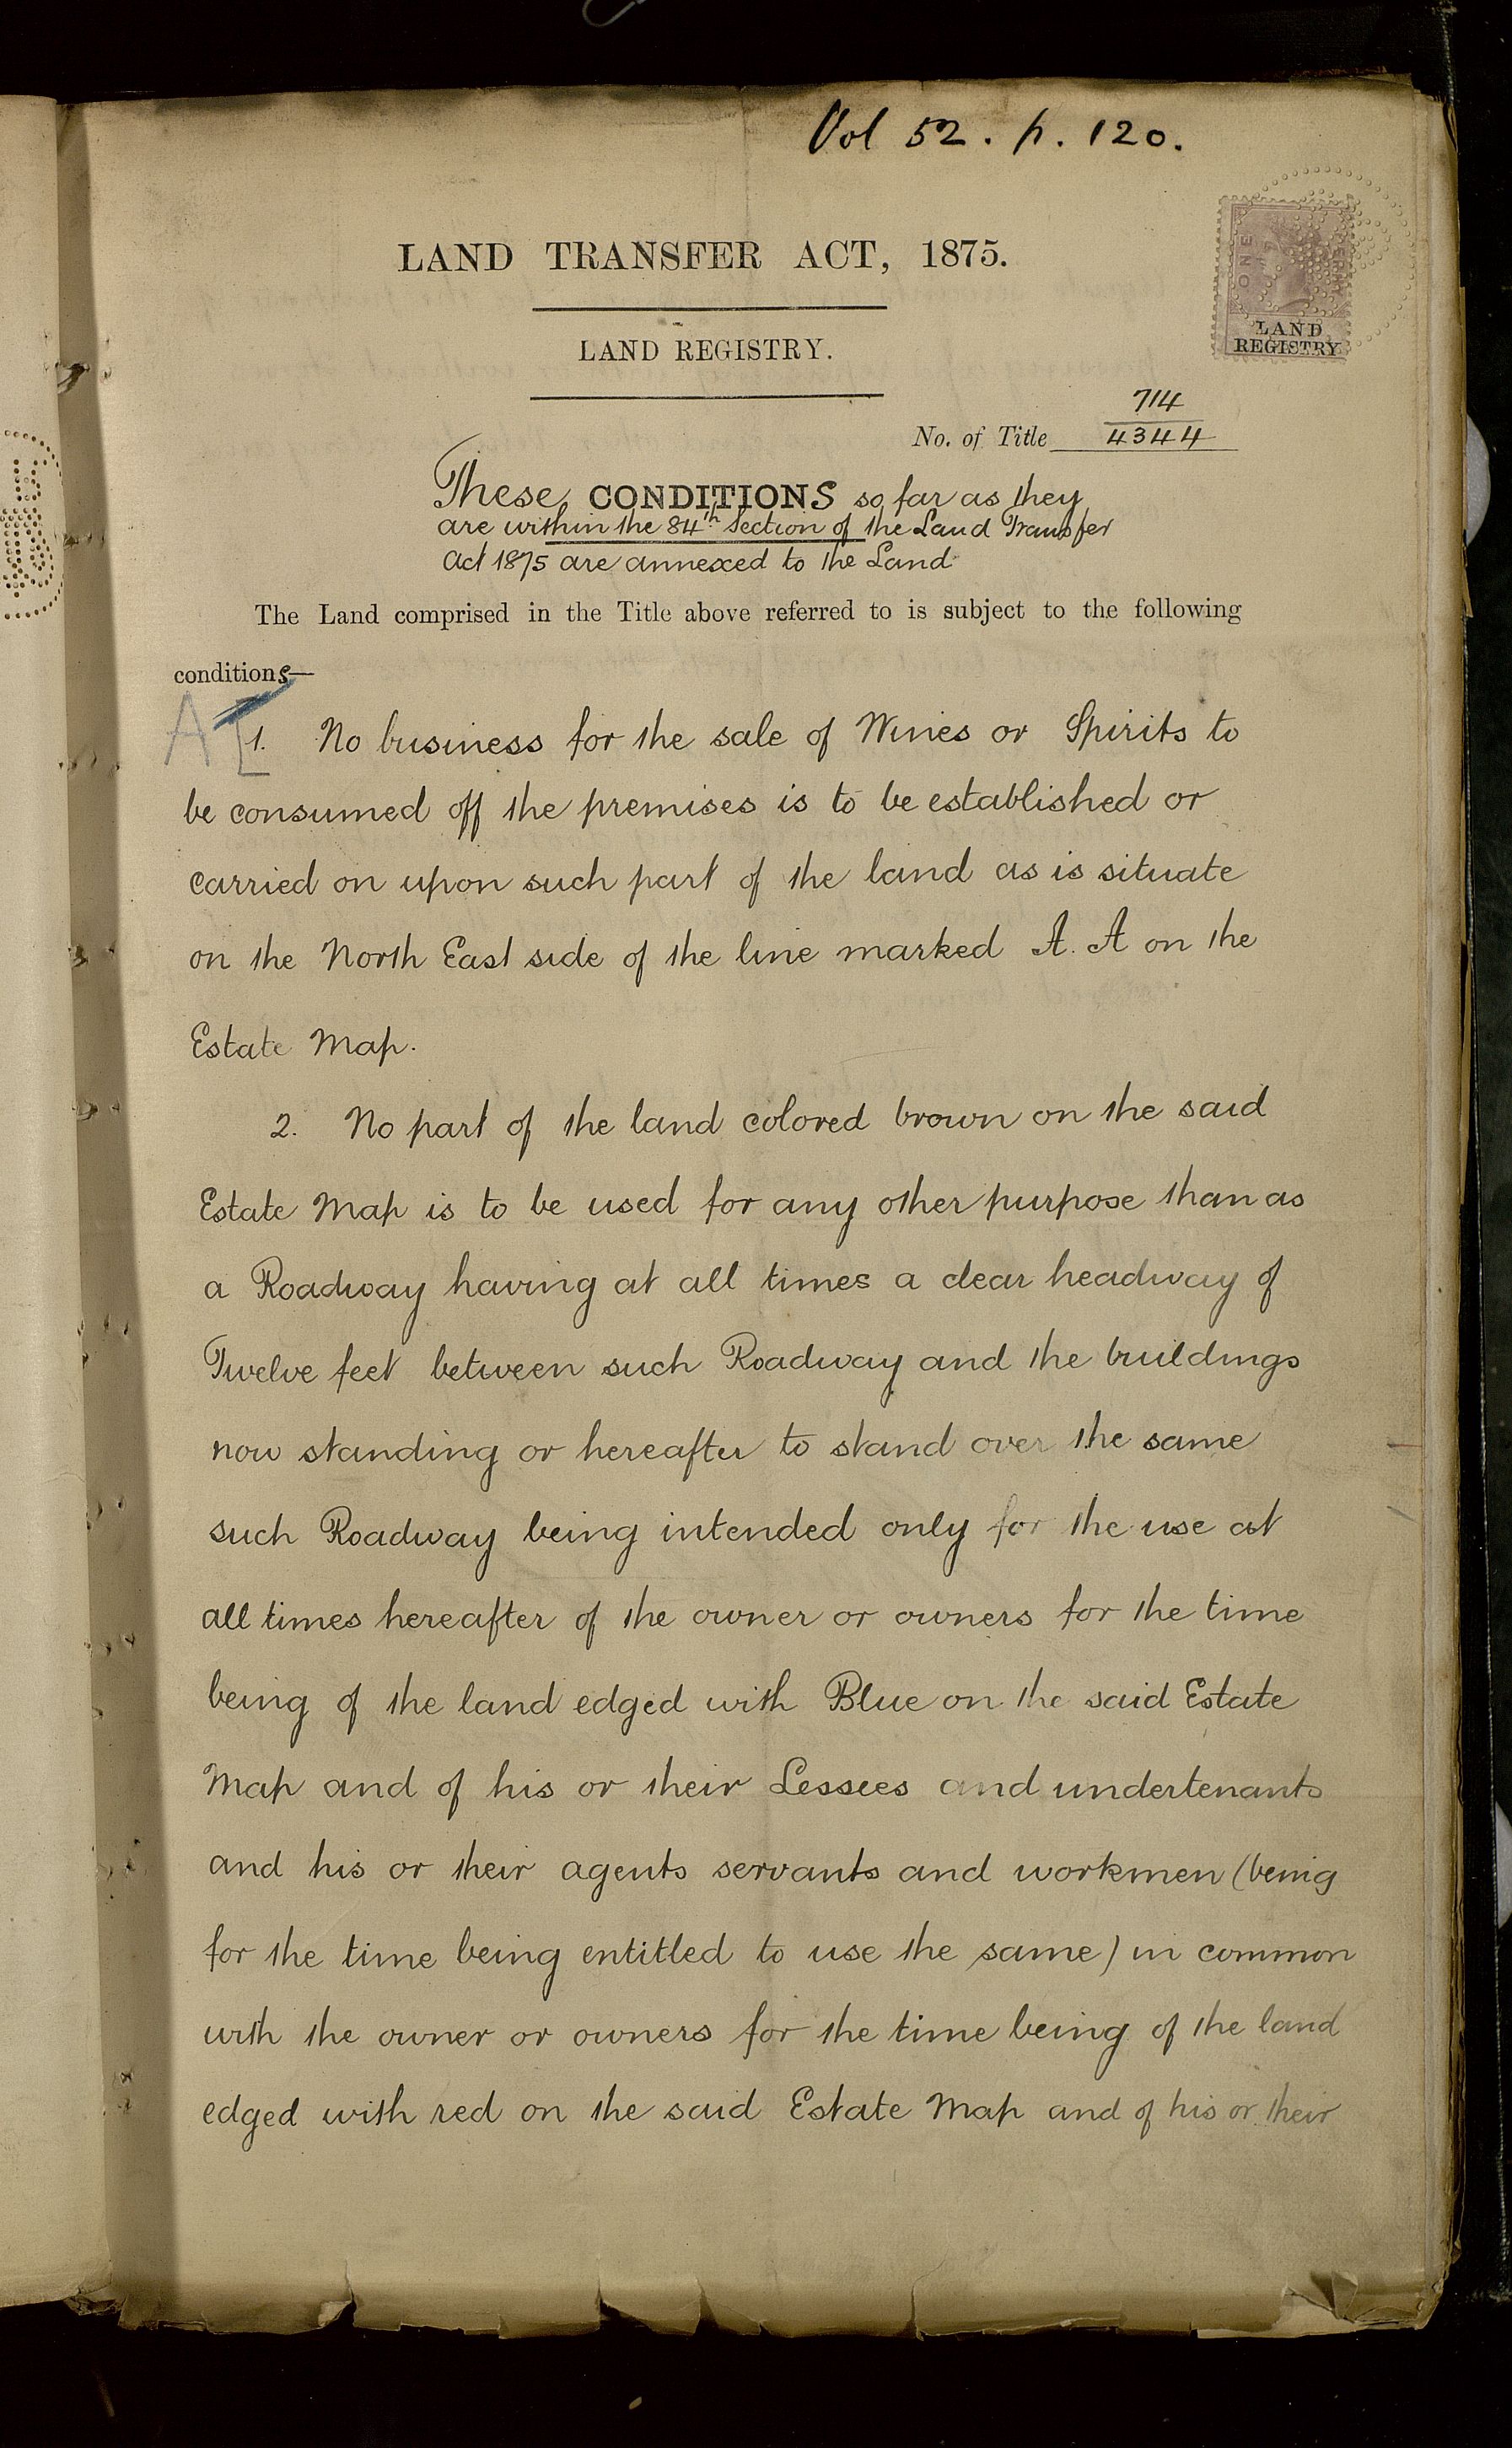 Vol 52. p. 120.
LAND TRANSFER ACT, 1875.
LAND REGISTRY.
ONE
LAND
REGISTRY
714
No. of Title 4344
These CONDITIONS so far as they
are within the 84th Section of the Land Transfer
Act 1875 are annexed to the Land
The Land comprised in the Title above referred to is subject to the following
conditions—
A [1. No business for the sale of Wines or Spirits to
be consumed off the premises is to be established or
carried on upon such part of the land as is situate
on the North East side of the line marked A. A on the
Estate Map.
2. No part of the land colored brown on the said
Estate Map is to be used for any other purpose than as
a Roadway having at all times a clear headway of
Twelve feet between such Roadway and the buildings
now standing or hereafter to stand over the same
such Roadway being intended only for the use at
all times hereafter of the owner or owners for the time
being of the land edged with Blue on the said Estate
Map and of his or their Lessees and undertenants
and his or their agents servants and workmen (being
for the time being entitled to use the same) in common
with the owner or owners for the time being of the land
edged with red on the said Estate Map and of his or their